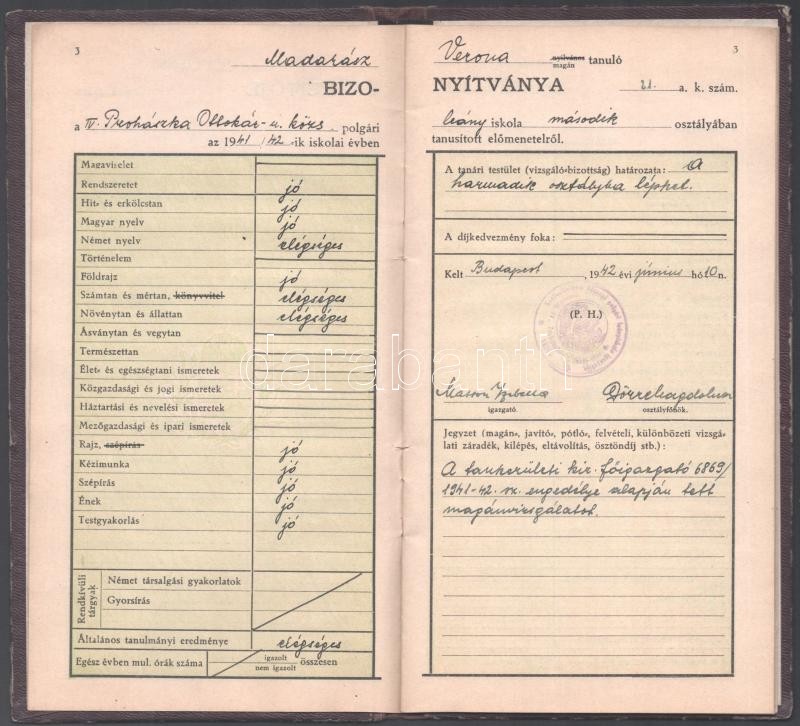 3
Madarász
BIZO-
a IV. Prohászka Ottokár-u. közs. polgári
az 1941/42-ik iskolai évben
Magaviselet
Rendszeretet jó
Hit- és erkölcstan jó
Magyar nyelv jó
Német nyelv elégséges
Történelem
Földrajz jó
Számtan és mértan, könyvvitel elégséges
Növénytan és állattan elégséges
Ásványtan és vegytan
Természettan
Élet- és egészségtani ismeretek
Közgazdasági és jogi ismeretek
Háztartási és nevelési ismeretek
Mezőgazdasági és ipari ismeretek
Rajz, szépírás jó
Kézimunka jó
Szépírás jó
Ének jó
Testgyakorlás jó
Rendkívüli tárgyak
Német társalgási gyakorlatok
Gyorsírás
Általános tanulmányi eredménye elégséges
Egész évben mul. órák száma igazolt nem igazolt összesen
3
Verona nyilvános magán tanuló
NYÍTVÁNYA 21. a. k. szám.
leány iskola második osztályában
tanusított előmenetelről.
A tanári testület (vizsgáló-bizottság) határozata: A
harmadik osztályba léphet.
A díjkedvezmény foka:
Kelt Budapest, 1942 évi június hó 20 n.
(P. H.)
igazgató.
osztályfőnök.
Jegyzet (magán-, javító-, pótló-, felvételi, különbözeti vizsgá-
lati záradék, kilépés, eltávolítás, ösztöndíj stb.):
A tankerületi kir. főigazgató 6869/
1941-42. sz. engedélye alapján tett
magánvizsgálatot.
darabanth